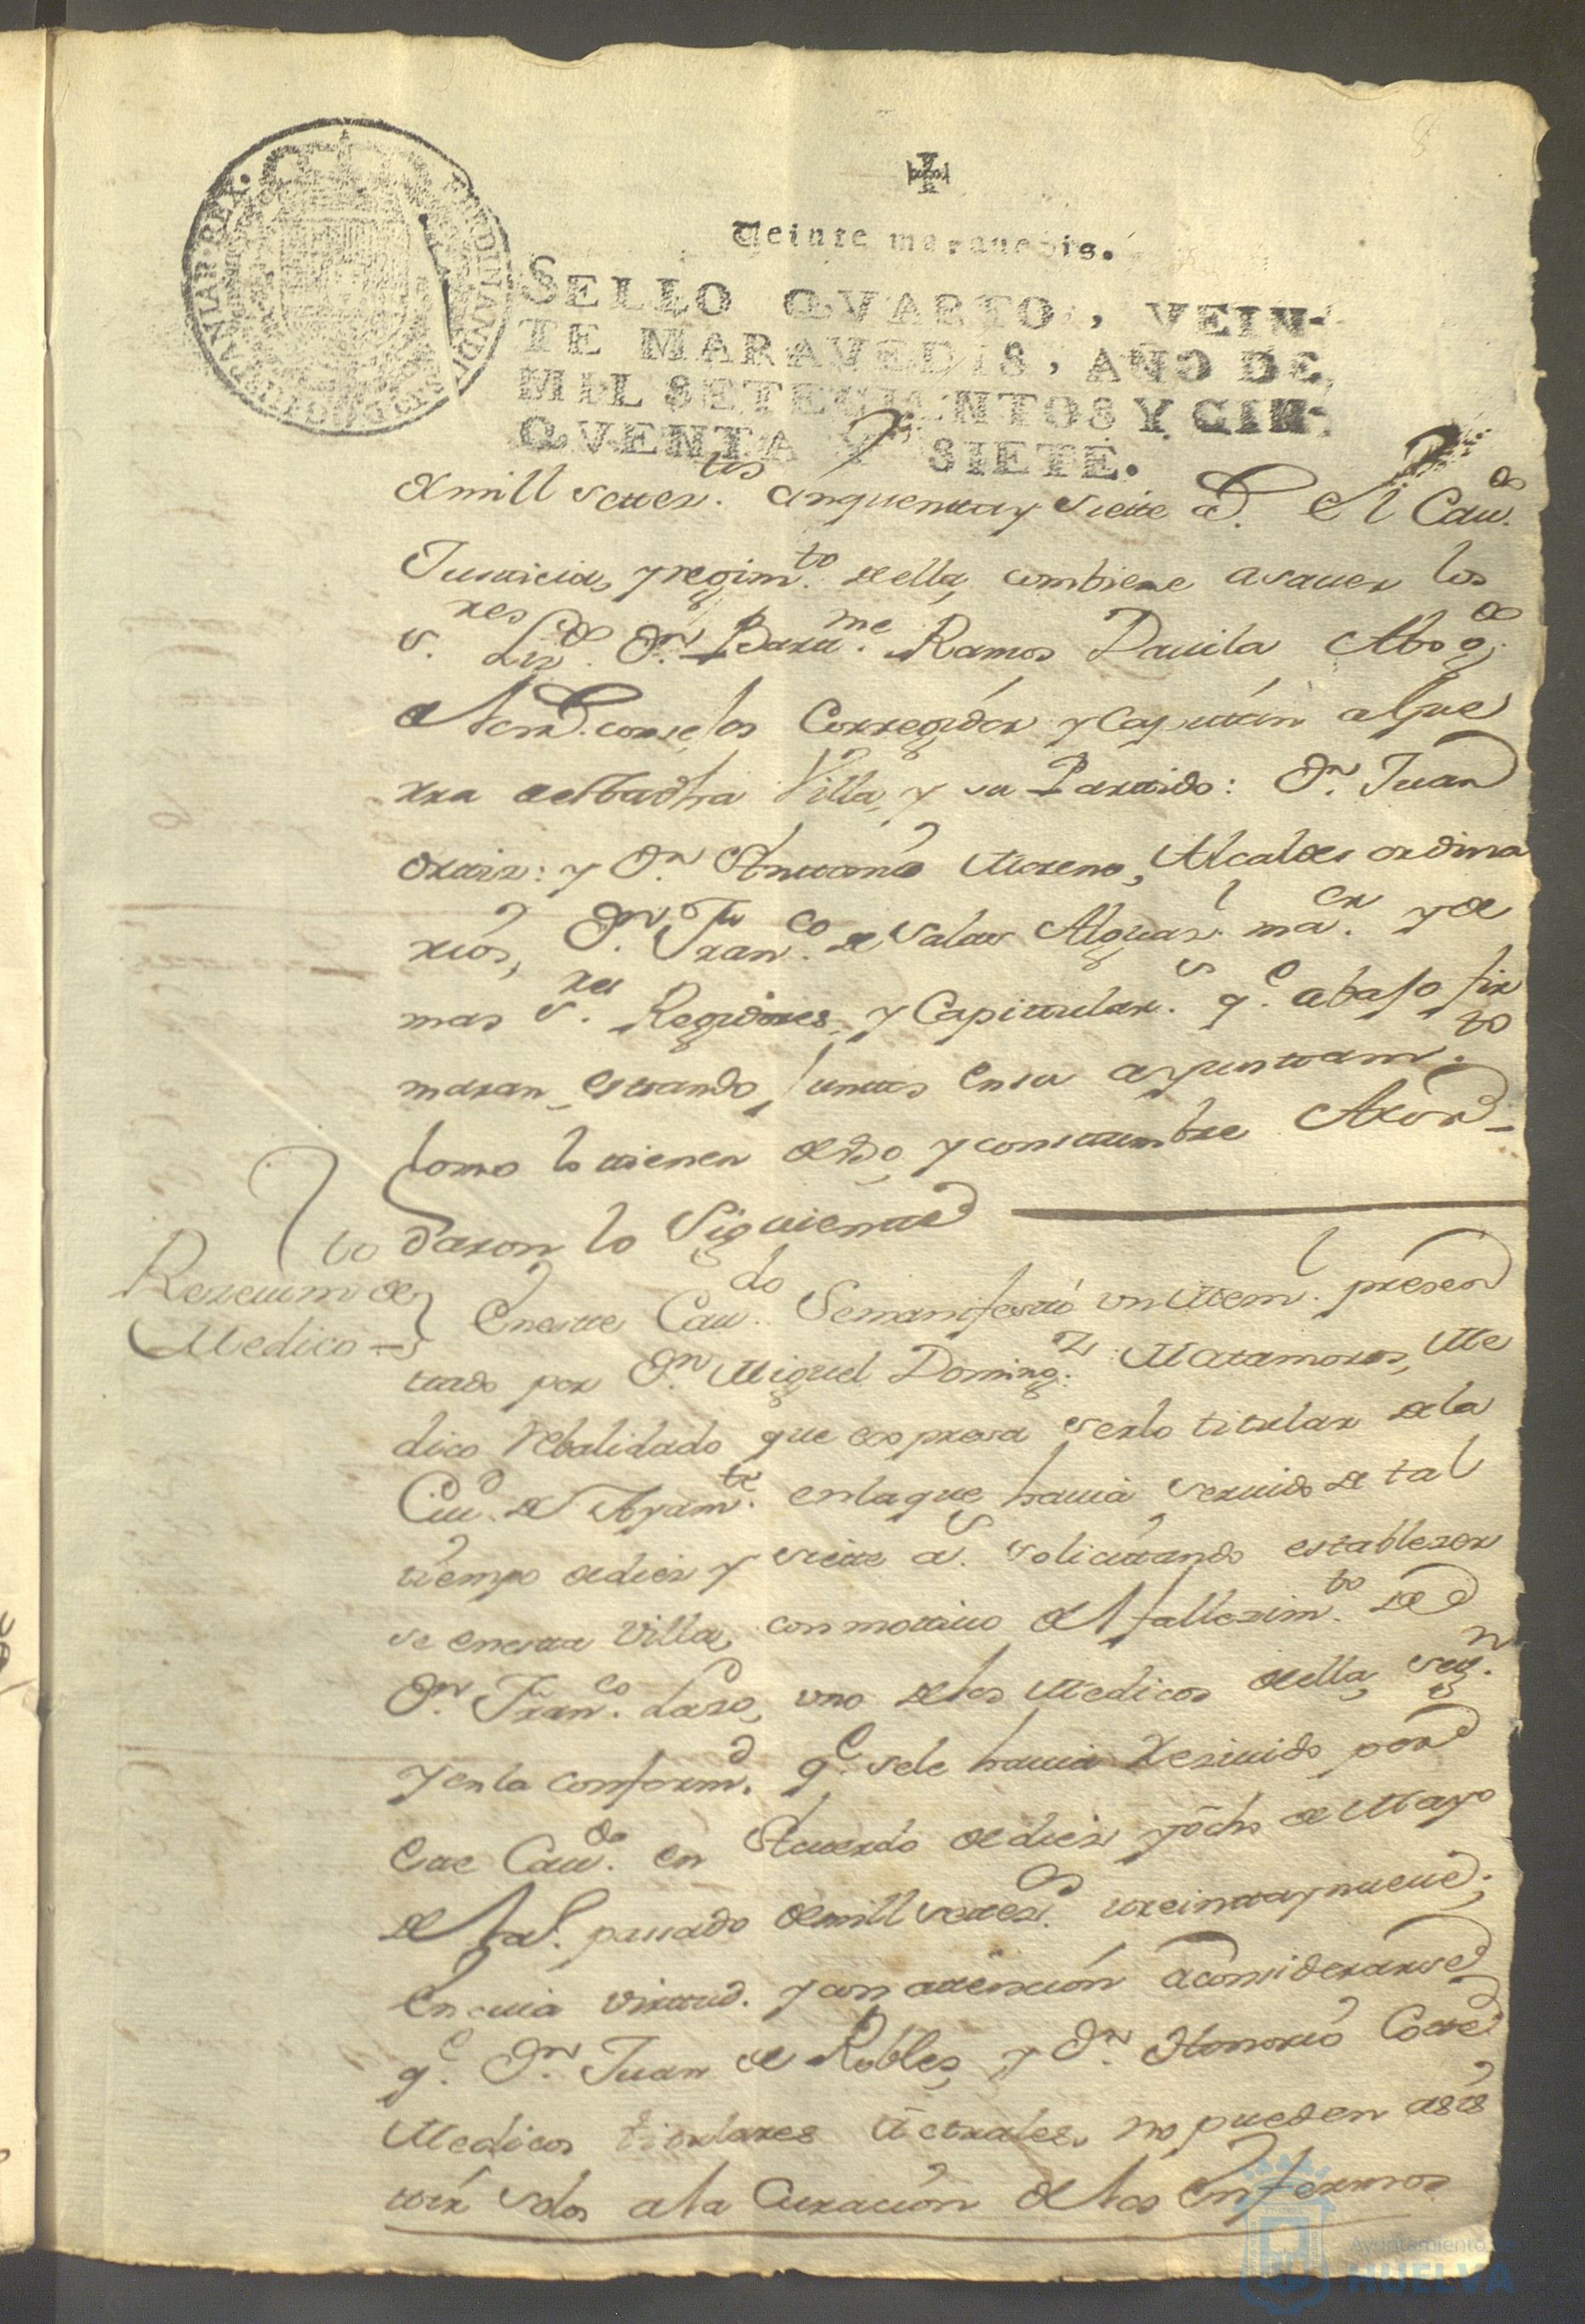 Veinte maravedis.
SELLO QVARTO, VEIN-
TE MARAVEDIS, AÑO DE
MIL SETECIENTOS Y CIN-
QVENTA Y SIETE.
HISPANIAR. REX.
FERDINANDUS
D. G.
de mill setez.tos cinquenta y siete a.s El Cau.do
Justicia, y regim.to de ella, combiene a sauer los
s.res Liz.do D.n Bartt.me Ramos Dauila Abog.do
de los R.s consejos Corregidor y Capittan a Gue
rra de esta dha Villa, y su Partido: D.n Juan
Orttiz: y D.n Anttonio Moreno, Alcaldes ordina
rios, D.n Fran.co de Salas Alguaz.l ma.or y de
mas s.res Regidores, y Capitular.s q.e abajo fir
maran, esttando juntos en su ayunttam.to
como lo tienen de vso, y consttumbre Acor-
daron lo Siguientte
Rezeuim.to de
Medico
En estte Cau.do Se manifesttó un Mem.l presen
ttado por D.n Miguel Doming.z Matamoros, Me
dico Rebalidado que expresa serlo titular de la
Ciu.d de Ayam.te en la que hauia seruido de tal
tiempo de diez y siette a.s solicittando establezer
se en estta Villa, con mottiuo del fallezim.to de
D.n Fran.co Laso, uno de los Medicos de ella, seg.n
y en la conform.d q.e se le hauia Reziuido por
este Cau.do en Acuerdo de diez y ocho de Mayo
del a.o passado de mill setez.s treintta y nueue;
En cuia virttud. y con attencion a considerarse
q.e D.n Juan de Robles, y D.n Honorio Cotte
Medicos titulares Actuales, no pueden asis
ttir solos a la Curacion de los Enfermos
Ayuntamiento de
HUELVA